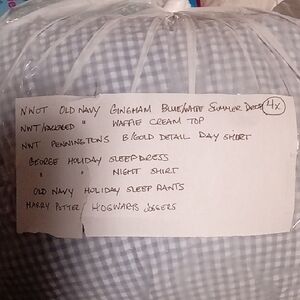 NWOT OLD NAVY GINGHAM BLUE/WHITE SUMMER DRESS 4X
NWT/ " WAFFLE CREAM TOP
NWT PENNINGTONS B/GOLD DETAIL DAY SHIRT
GEORGE HOLIDAY SLEEPDRESS
" " NIGHT SHIRT
OLD NAVY HOLIDAY SLEEP PANTS
HARRY POTTER/HOGWARTS JOGGERS